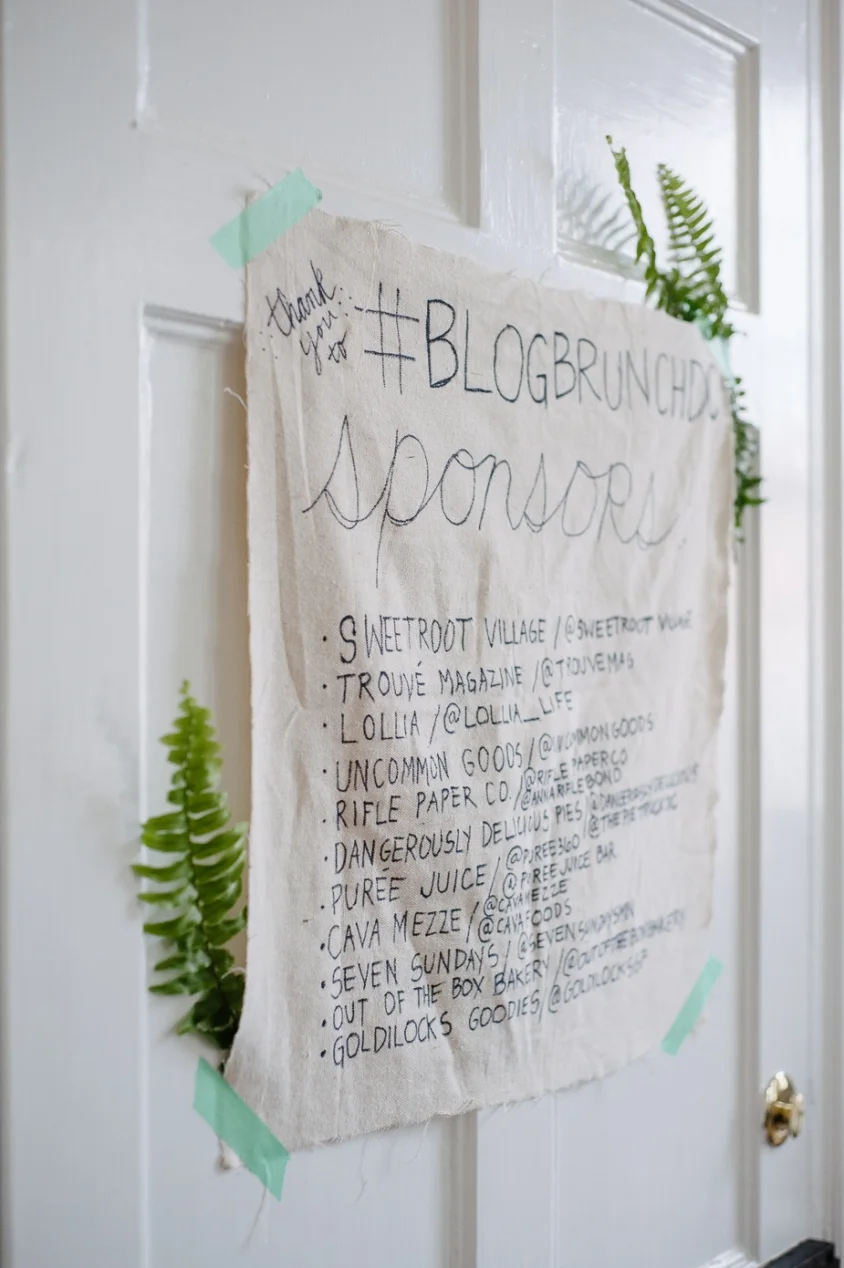 thank you to
#BLOGBRUNCHDC
sponsors
· SWEETROOT VILLAGE / @SWEETROOT VILLAGE
· TROUVÉ MAGAZINE / @TROUVEMAG
· LOLLIA / @LOLLIA_LIFE
· UNCOMMON GOODS / @UNCOMMONGOODS
· RIFLE PAPER CO. / @RIFLEPAPERCO
@ANNARIFLEBOND
· DANGEROUSLY DELICIOUS PIES / @DANGEROUSLYDELICIOUS
/ @THEPIETRUCKDC
· PURÉE JUICE / @PUREE360
@PUREEJUICE BAR
· CAVA MEZZE / @CAVAMEZZE
@CAVAFOODS
· SEVEN SUNDAYS / @SEVENSUNDAYSMN
· OUT OF THE BOX BAKERY / @OUTOFTHEBOXBAKERY
· GOLDILOCKS GOODIES / @GOLDILOCKSGF